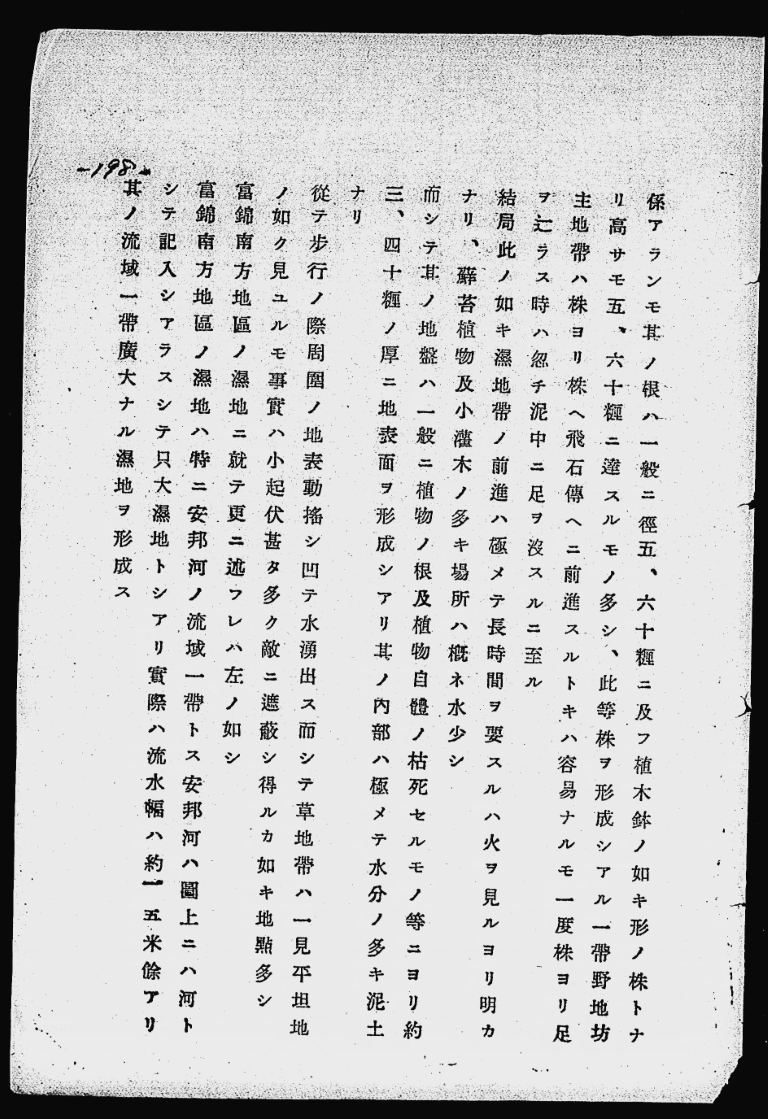 係アランモ其ノ根ハ一般ニ徑五、六十糎ニ及フ植木鉢ノ如キ形ノ株トナ
リ高サモ五、六十糎ニ達スルモノ多シ、此等株ヲ形成シアル一帶野地坊
主地帶ハ株ヨリ株ヘ飛石傳ヘニ前進スルトキハ容易ナルモ一度株ヨリ足
ヲ辷ラス時ハ忽チ泥中ニ足ヲ沒スルニ至ル
結局此ノ如キ濕地帶ノ前進ハ極メテ長時間ヲ要スルハ火ヲ見ルヨリ明カ
ナリ、蘚苔植物及小灌木ノ多キ場所ハ概ネ水少シ
而シテ其ノ地盤ハ一般ニ植物ノ根及植物自體ノ枯死セルモノ等ニヨリ約
三、四十糎ノ厚ニ地表面ヲ形成シアリ其ノ內部ハ極メテ水分ノ多キ泥土
ナリ
從テ步行ノ際周圍ノ地表動搖シ凹テ水湧出ス而シテ草地帶ハ一見平坦地
ノ如ク見ユルモ事實ハ小起伏甚タ多ク敵ニ遮蔽シ得ルカ如キ地點多シ
富錦南方地區ノ濕地ニ就テ更ニ述フレハ左ノ如シ
富錦南方地區ノ濕地ハ特ニ安邦河ノ流域一帶トス安邦河ハ圖上ニハ河ト
シテ記入シアラスシテ只大濕地トシアリ實際ハ流水幅ハ約一五米餘アリ
其ノ流域一帶廣大ナル濕地ヲ形成ス
-198-